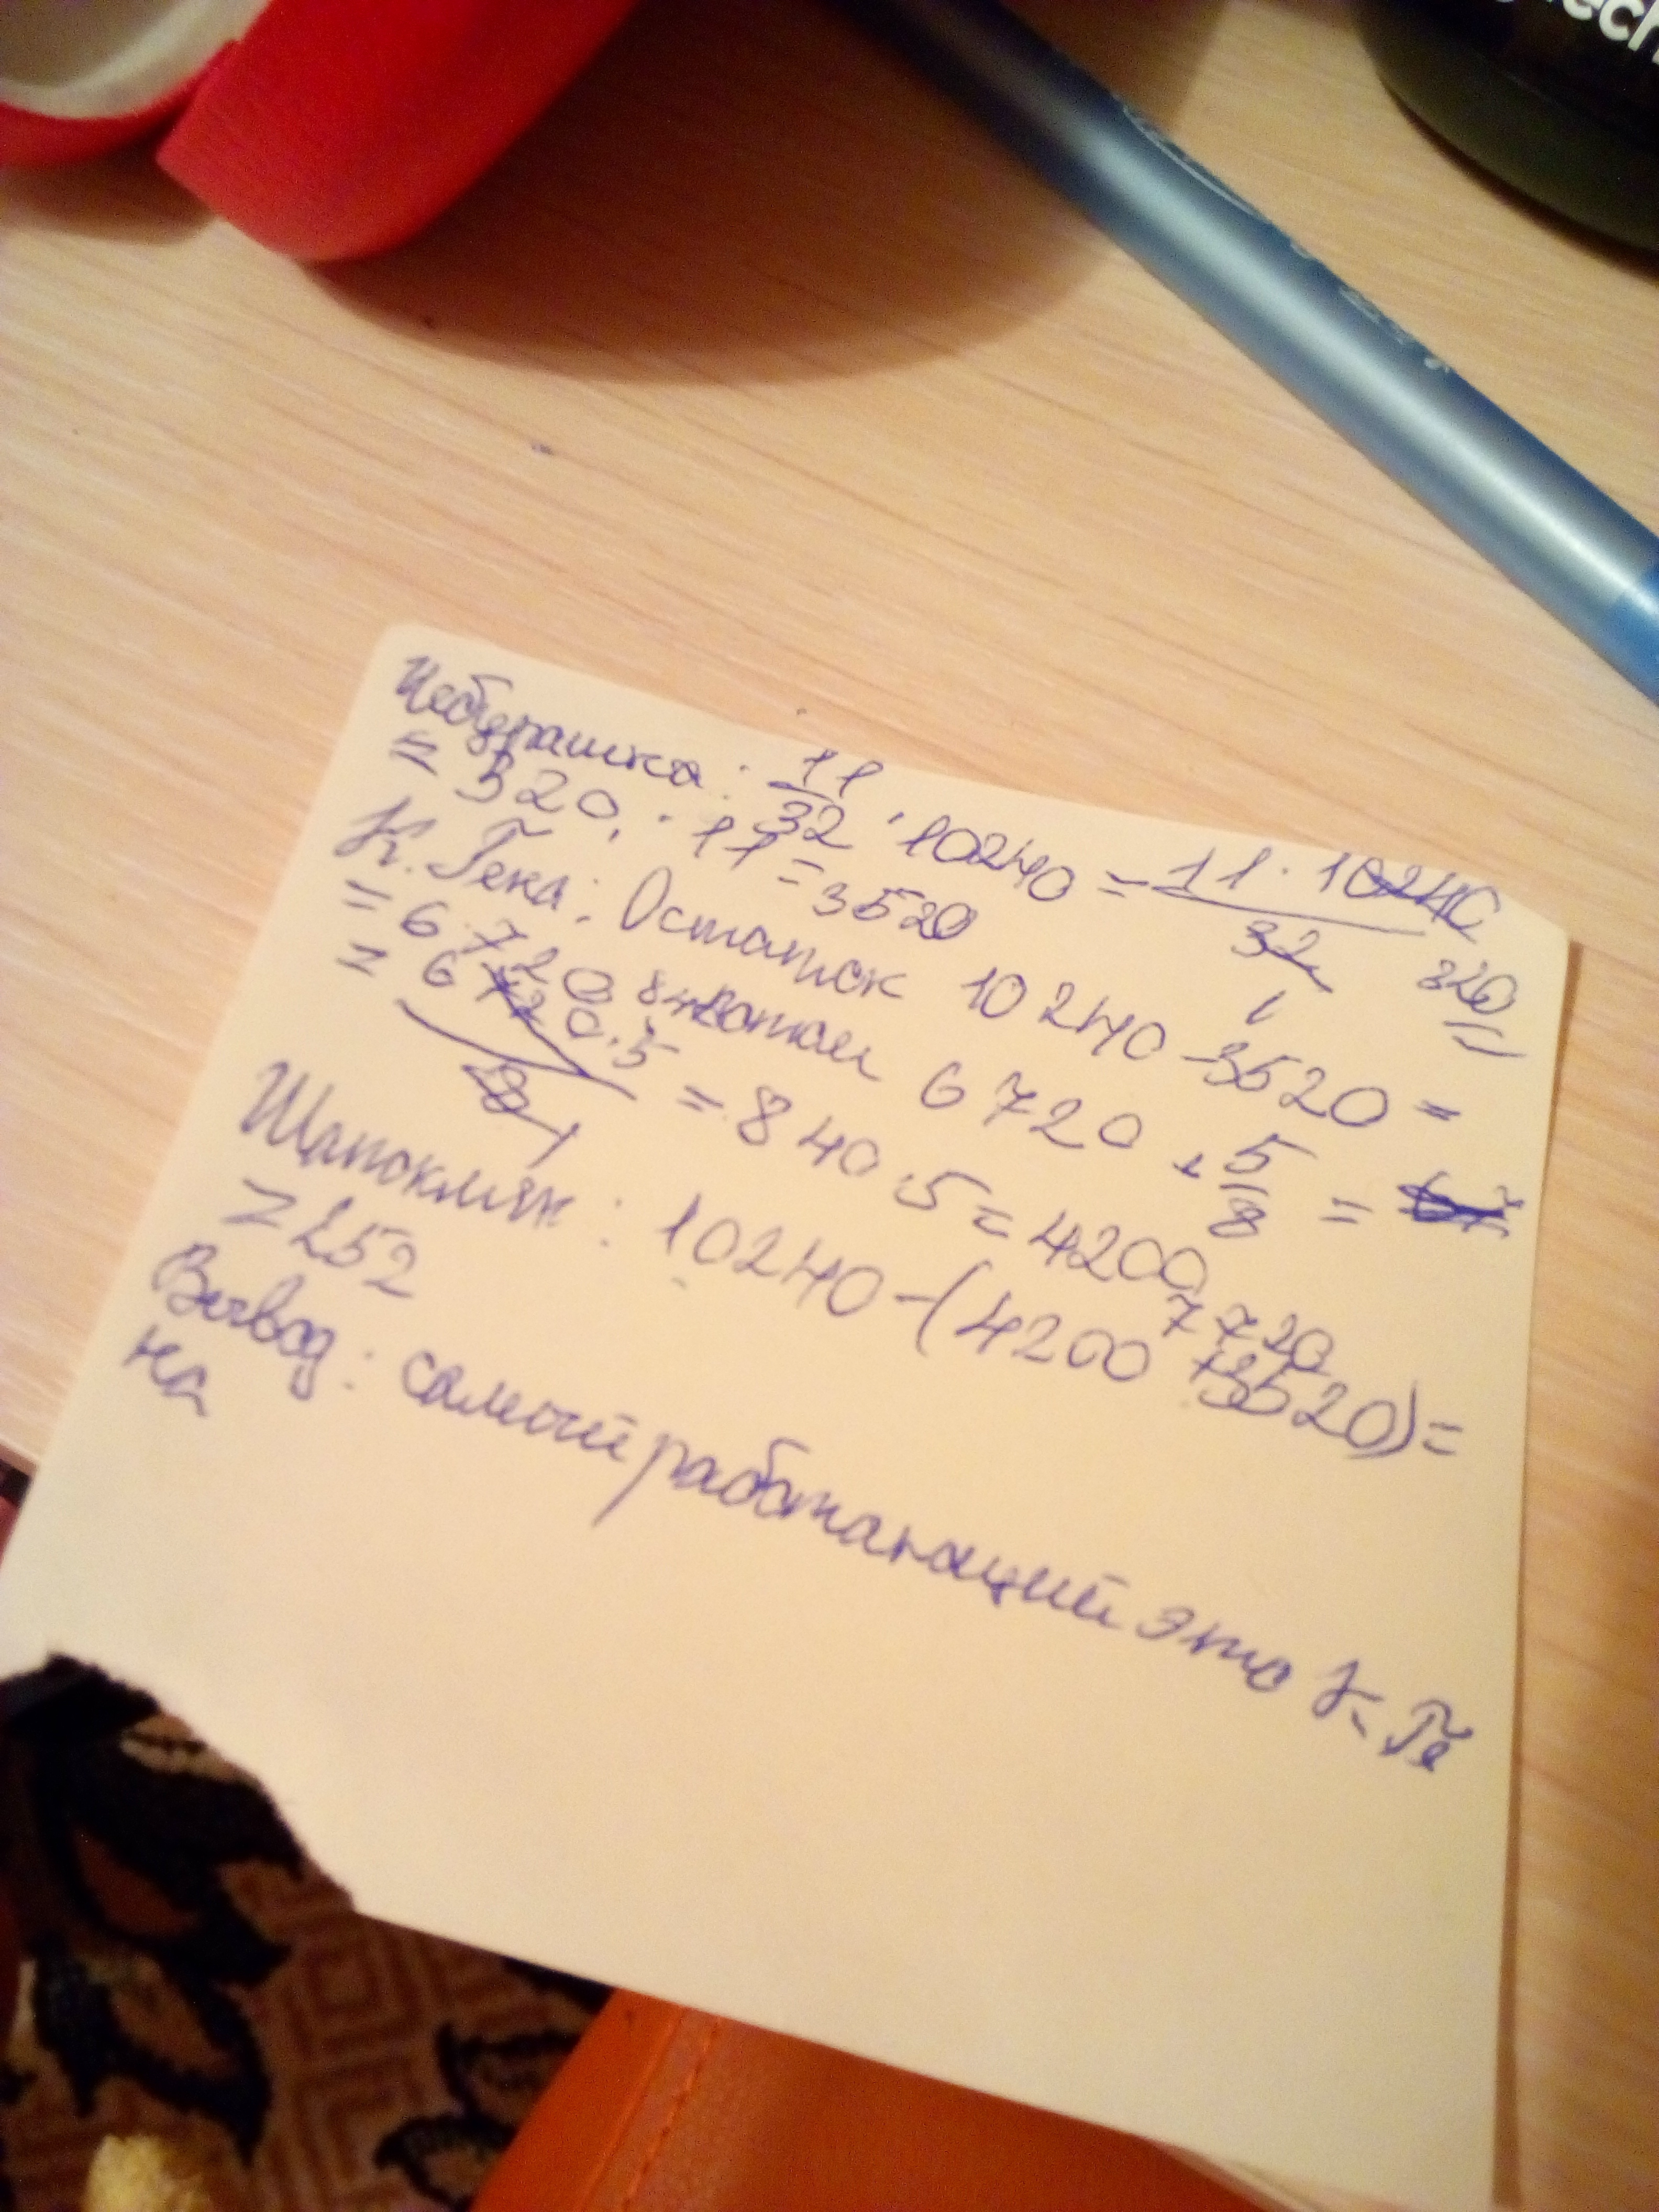 tech
Чебурашка: 11/32 · 10240 = 11 · 10240/32 =
1 320
= 320 · 11 = 3520
К. Гена: Остаток 10240 - 3520 =
= 6720, 6720 · 5/8 =
= 6720 · 5/8 = 840 · 5 = 4200
840
1
7720
Шапокляк: 10240 - (4200 + 3520) =
= 252
Вывод: самый работающий это К Ге
на